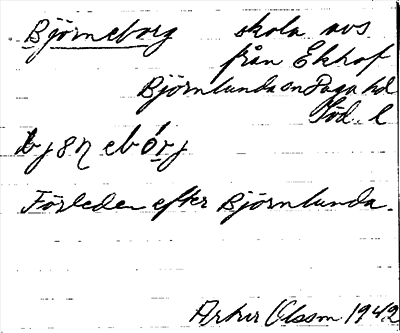 Björneborg skola avs
från Ekhof
Björnlunda sn Daga hd
Söd. l
bjö̀rnebórj
Förleden efter Björnlunda.
Arthur Olsson 1942